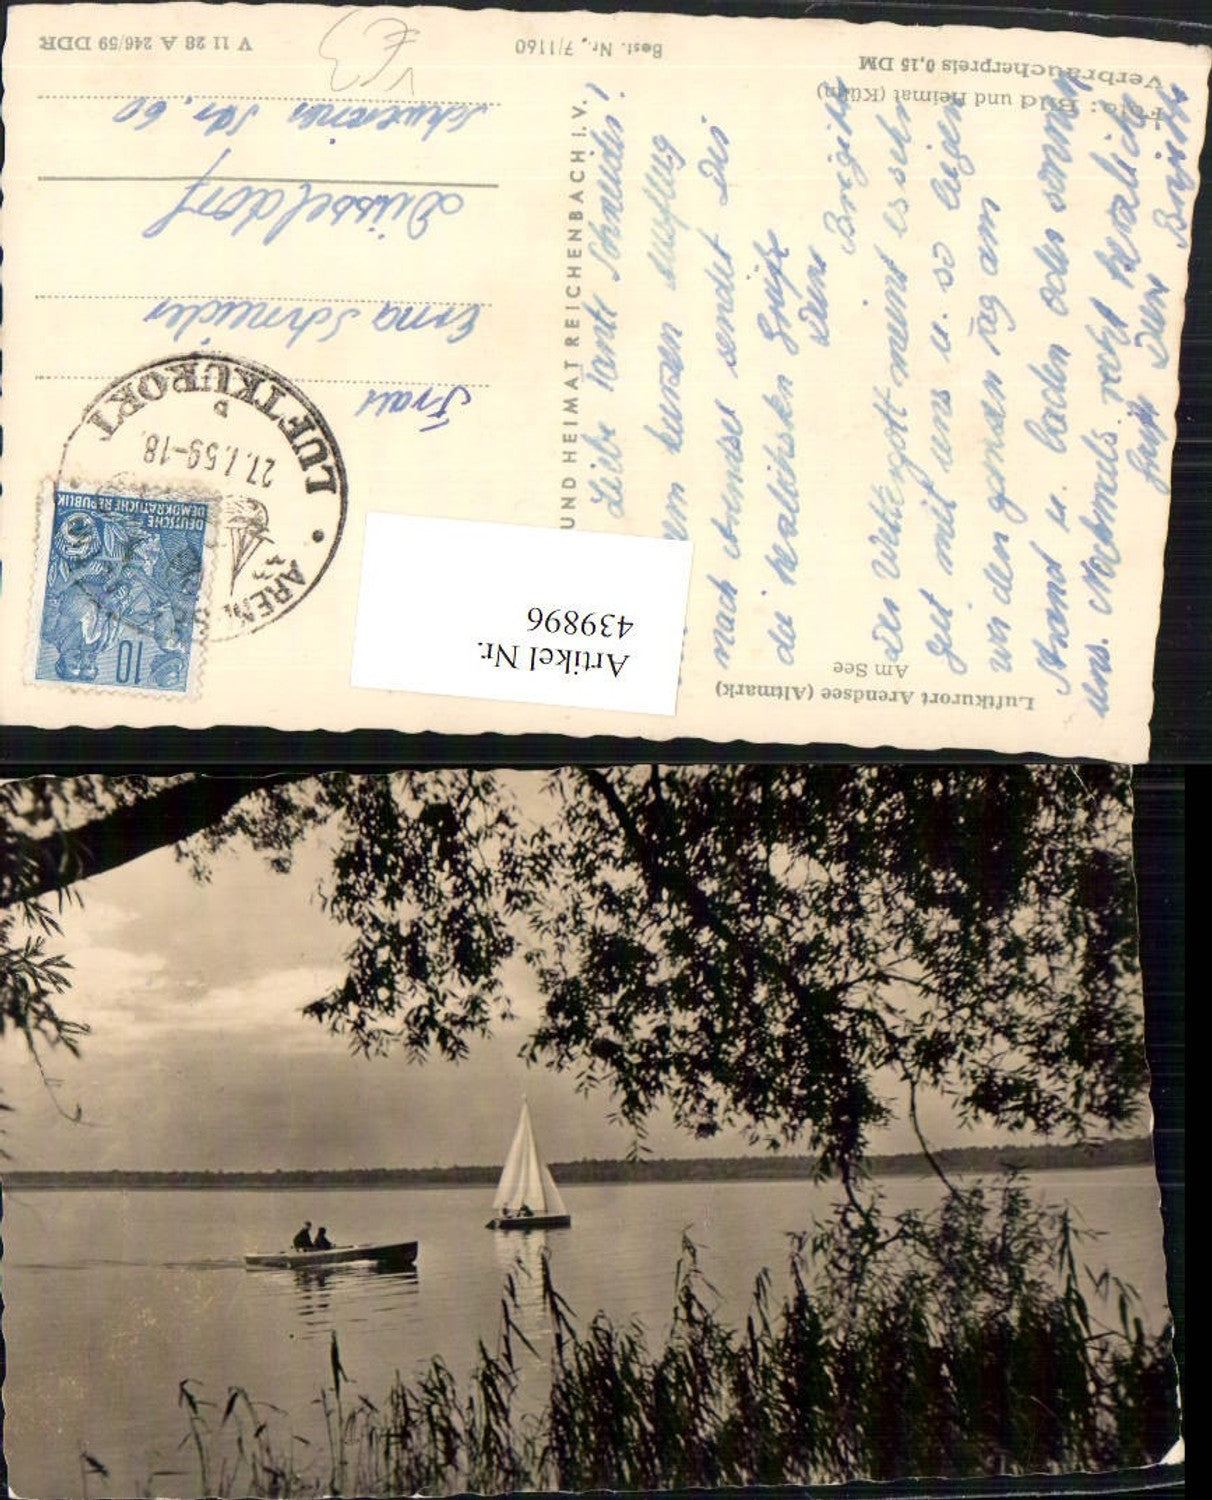 Luftkurort Arendsee (Altmark)
Am See
Liebe Tante Schneider!
einem kurzen Ausflug
nach Arendsee sendet Dir
die herzlichsten Grüße
Deine Brigitte
Der Wettergott meint es sehr
gut mit uns u. so liegen
wir den ganzen Tag am
Strand u. baden oder sonnen
uns. Nochmals recht herzliche
Grüße Dein
Foto: Bild und Heimat (Kühn)
Verbraucherpreis 0,15 DM
UND HEIMAT REICHENBACH I. V.
Best. Nr. 7/1160
V 11 28 A 246/59 DDR
DEUTSCHE
DEMOKRATISCHE REPUBLIK
10
AREN
LUFTKURORT
27.7.59-18
Frau
Erna Schneider
Düsseldorf
Schweriner Str. 60
Artikel Nr.
439896